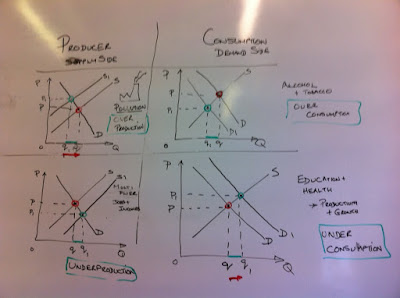 PRODUCER
SUPPLY SIDE
CONSUMPTION
DEMAND SIDE
P
S1
S
P1
P
POLLUTION
OVER
PRODUCTION
D
O
q1 q
Q
P
S
P
P1
D
D1
O
q1 q
Q
ALCOHOL
+ TOBACCO
OVER CONSUMPTION
P
S
S1
P
P1
JOBS +
INCOMES
D
O
q q1
Q
UNDERPRODUCTION
P
S
P1
P
D
D1
O
q q1
Q
EDUCATION +
HEALTH
→ PRODUCTIVITY
+ GROWTH
UNDER
CONSUMPTION